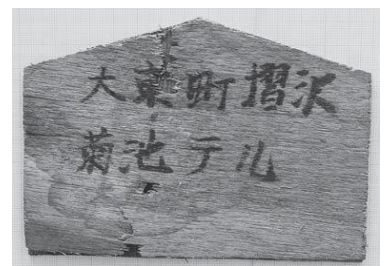 大東町摺沢
菊池テル